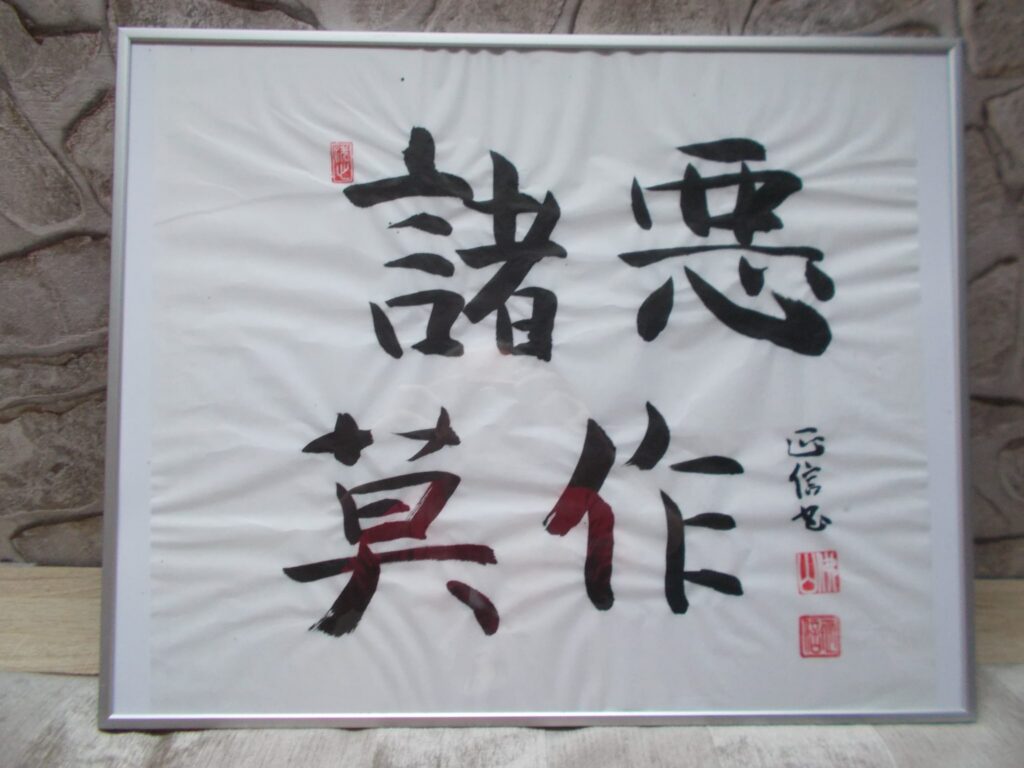 諸悪
莫作
正信書